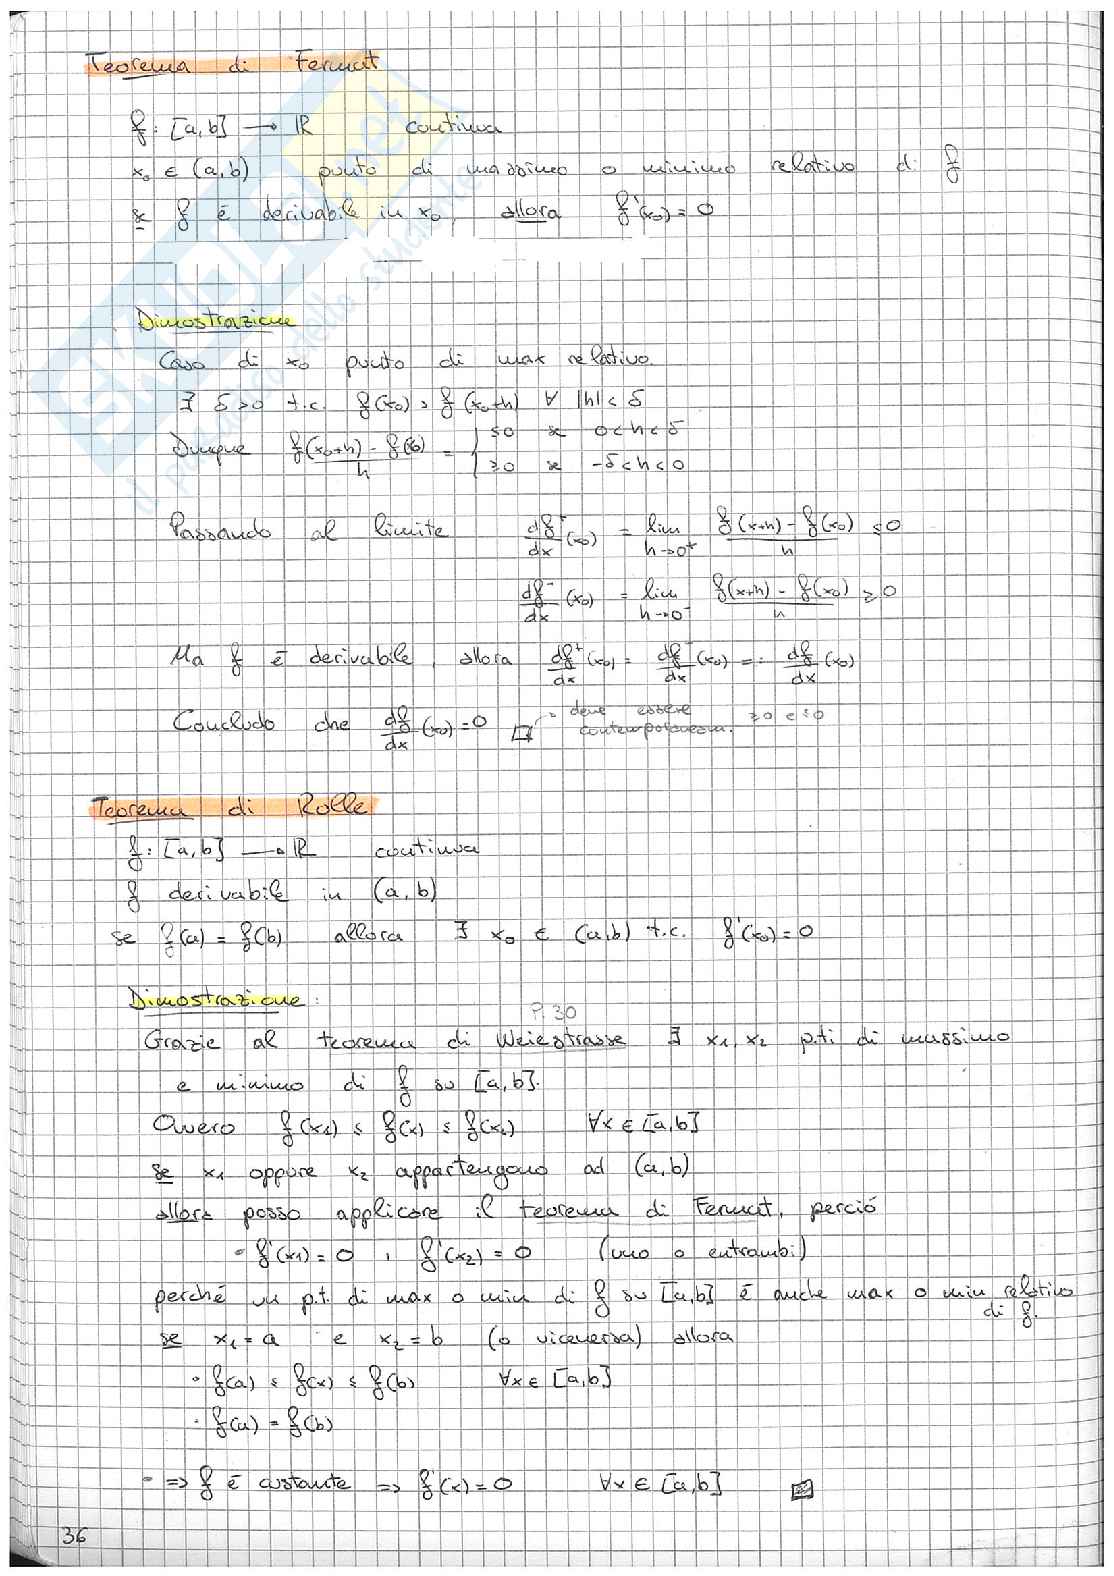 Teorema di Fermat
f: [a,b] → ℝ continua
x₀ ∈ (a,b) punto di massimo o minimo relativo di f
se f è derivabile in x₀, allora f'(x₀) = 0
Dimostrazione
Caso di x₀ punto di max relativo
∃ δ>0 t.c. f(x₀) ≥ f(x₀+h) ∀ |h| < δ
Dunque (f(x₀+h) - f(x₀))/h = { ≤0 se 0<h<δ
≥0 se -δ<h<0
Passando al limite df⁺/dx (x₀) = lim h→0⁺ (f(x+h) - f(x₀))/h ≤ 0
df⁻/dx (x₀) = lim h→0⁻ (f(x+h) - f(x₀))/h ≥ 0
Ma f è derivabile, allora df⁺/dx (x₀) = df⁻/dx (x₀) =: df/dx (x₀)
Concludo che df/dx (x₀) = 0 □ deve essere ≥0 e ≤0
contemporaneam.
Teorema di Rolle
f: [a,b] → ℝ continua
f derivabile in (a,b)
se f(a) = f(b) allora ∃ x₀ ∈ (a,b) t.c. f'(x₀) = 0
Dimostrazione:
P. 30
Grazie al teorema di Weiestrasse ∃ x₁, x₂ p.ti di massimo
e minimo di f su [a,b].
Ovvero f(x₁) ≤ f(x) ≤ f(x₂) ∀x ∈ [a,b]
se x₁ oppure x₂ appartengono ad (a,b)
allora posso applicare il teorema di Fermat, perció
• f'(x₁) = 0 , f'(x₂) = 0 (uno o entrambi)
perché un p.t. di max o min di f su [a,b] è anche max o min relativo
di f.
se x₁ = a e x₂ = b (o viceversa) allora
• f(a) ≤ f(x) ≤ f(b) ∀x ∈ [a,b]
• f(a) = f(b)
• => f è costante => f'(x) = 0 ∀x ∈ [a,b]
36
SKUOLA.net
il paradiso dello studente